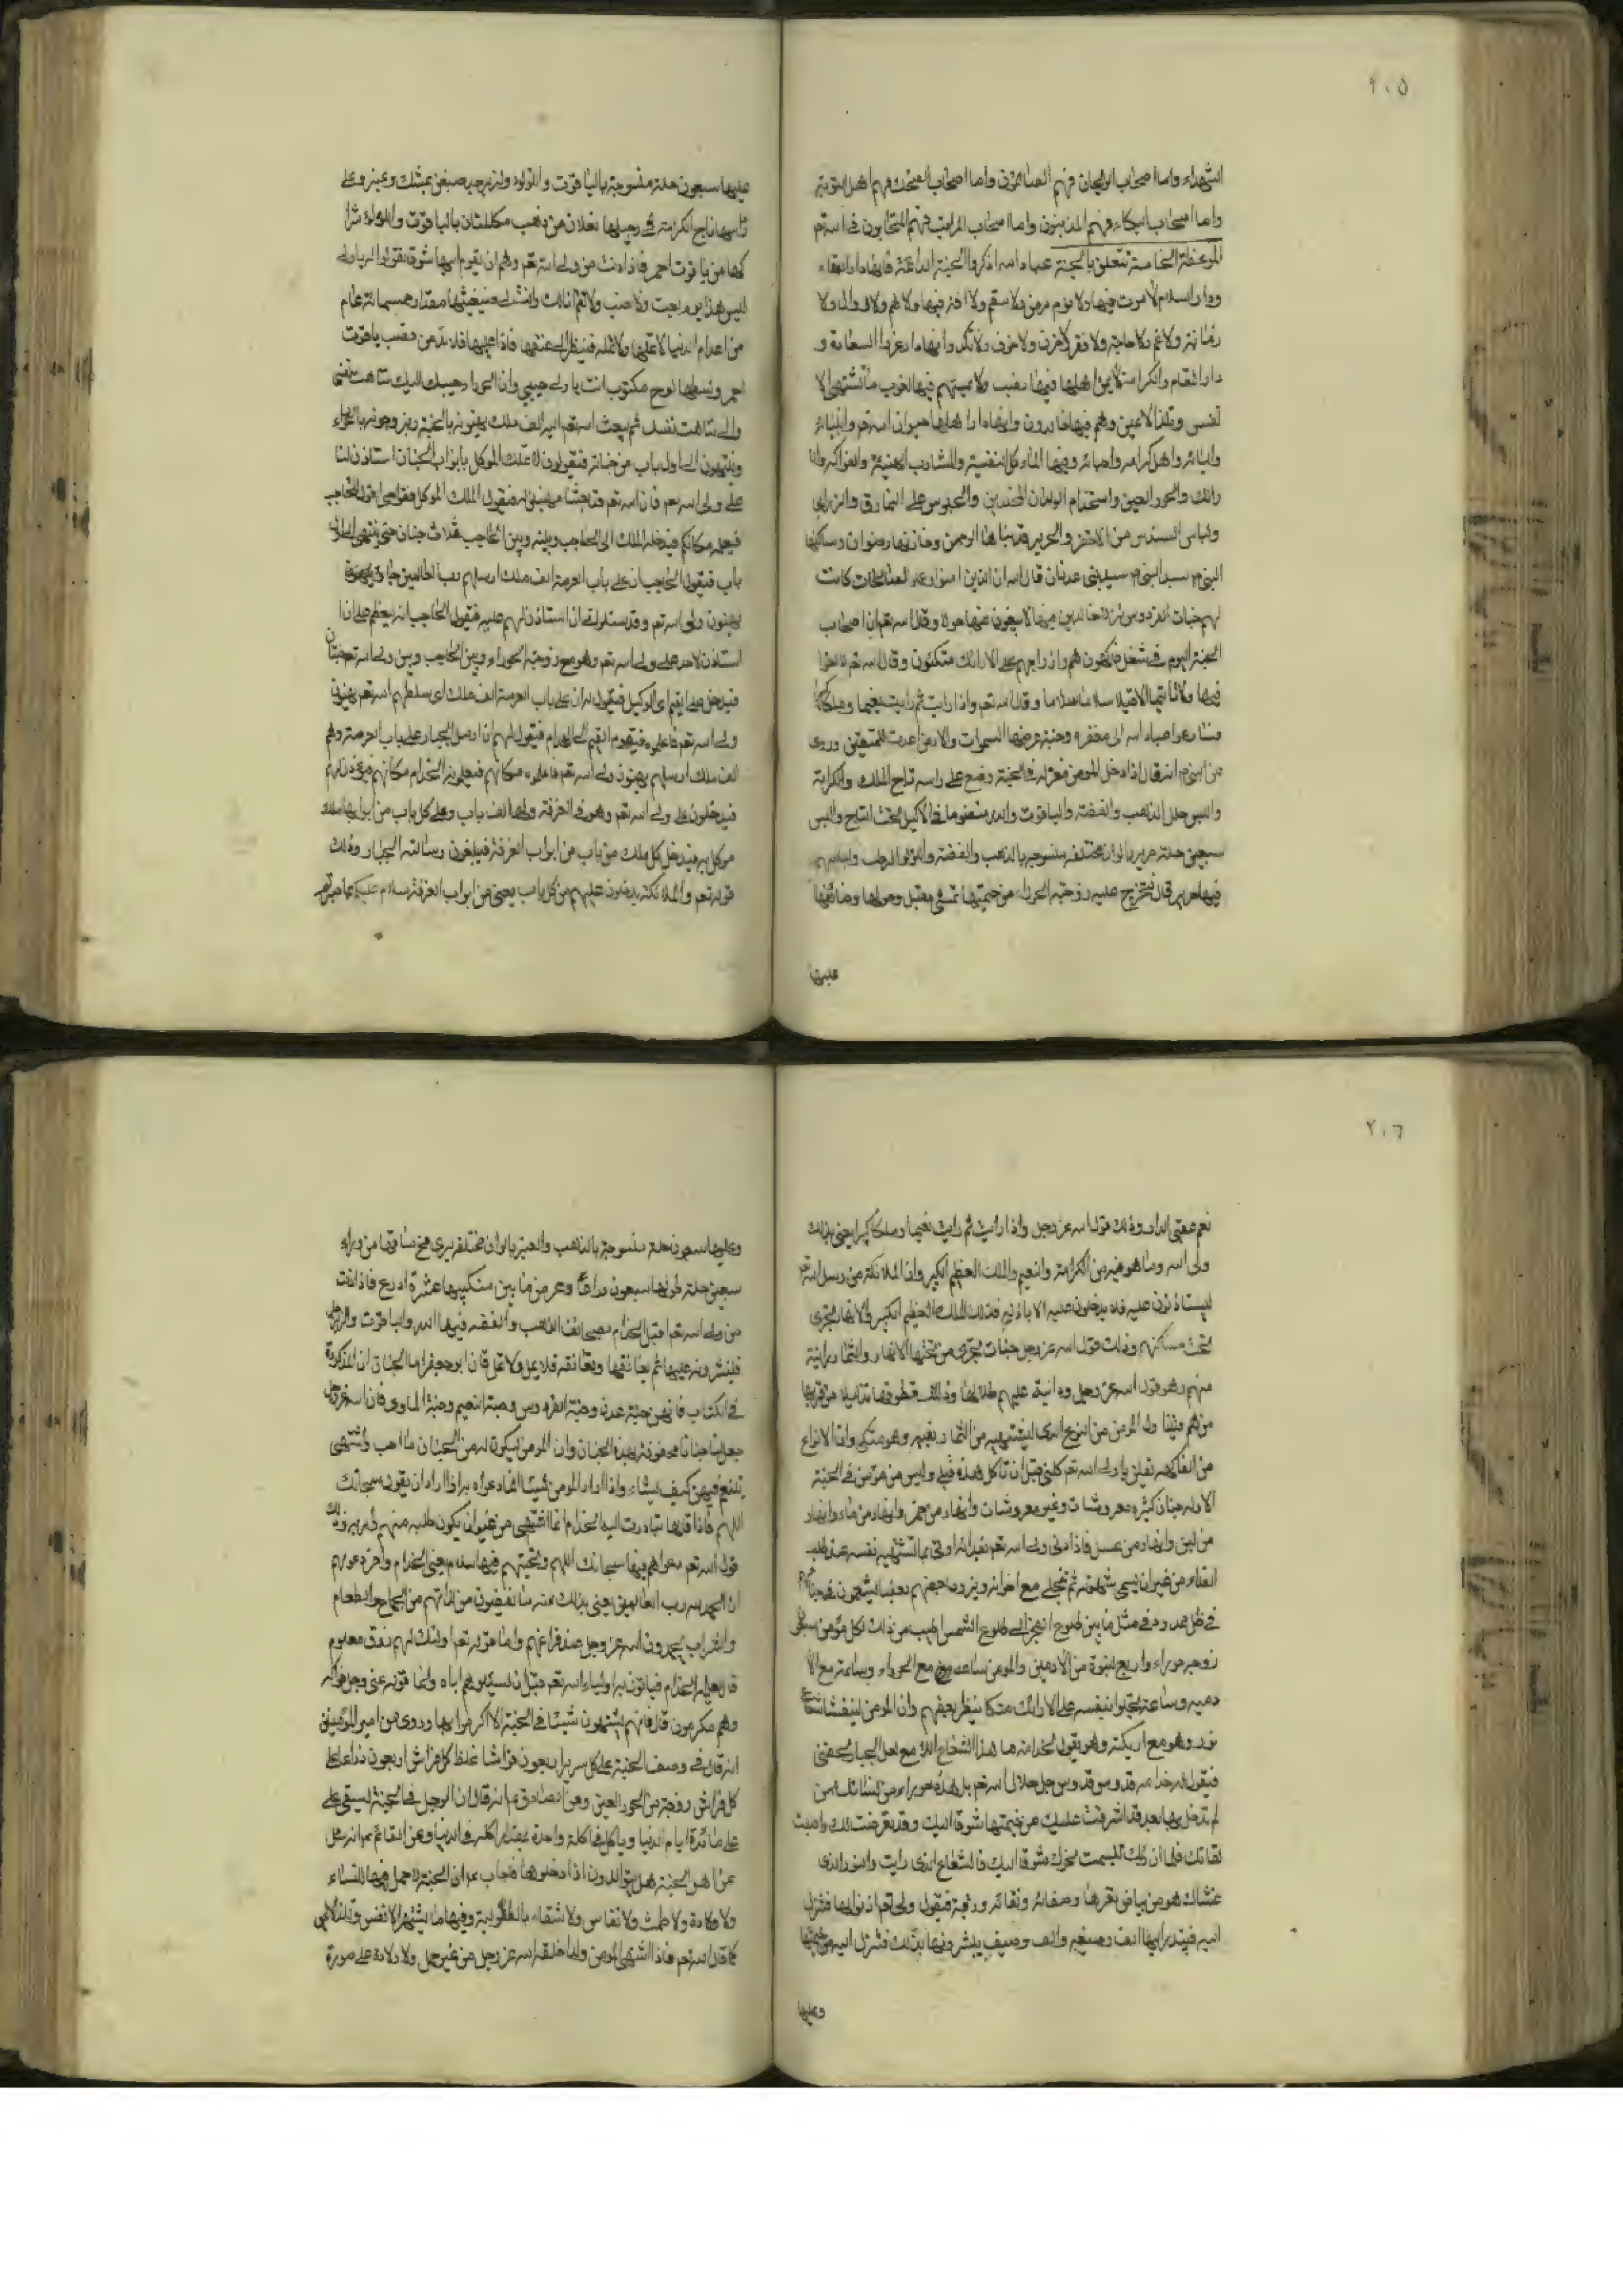 ٢٠٥
الشهداء واما اصحاب الريحان فهم الصائمون واما اصحاب الضحك فهم اهل التوبة
واما اصحاب البكاء فهم المذنبون واما اصحاب المراتب فهم المتحابون في الله تم
الموعظة الخامسة تتعلق بالجنة عباد الله اذكروا الجنة فانها دار البقاء
ودار السلام لا موت فيها ولا هرم ولا سقم ولا فيها ولا هم ولا زوال ولا
ولا غم ولا حاجة ولا فقر ولا حزن ولا خوف وانها دار السعادة و
دار المقام والكرامة لا يمس اهلها فيها نصب ولا يمسهم فيها لغوب ما تشتهي الا
نفس وتلذ الاعين وهم فيها خالدون وانها دار اهلها جيران الله تعم واوليائه
واحبائه واهل كرامته وفيها المآكل النفيسة والمشارب الهنيئة والفواكه
والحور العين واستخدام الولدان المخلدين والجلوس على النمارق والزرابي
ولباس السندس من الاخضر والحرير قد بناها الرحمن وخازنها رضوان وساكنها
النبي سيد بني عدنان قال الله ان الذين امنوا وعملوا الصالحات كانت
لهم جنات الفردوس نزلا خالدين فيها لا يبغون عنها حولا وقال الله تعم ان اصحاب
الجنة اليوم في شغل فاكهون هم وازواجهم على الارائك متكئون وقال الله تعم
فيها ولا تاثيما الا قيلا سلاما سلاما وقال الله تعم واذا رايت ثم رايت نعيما وملكا
عباد الله الى مغفرة وجنة عرضها السموات والارض اعدت للمتقين وروى
عن النبي انه قال اذا دخل المومن منزله في الجنة وضع على راسه تاج الملك والكرامة
والبس حلل الذهب والفضة والياقوت والدر منظوما في الاكليل تحت التاج والبس
سبعين حلة حرير بالوان مختلفة منسوجة بالذهب والفضة واللؤلؤ
فيها حرير قال فتخرج عليه زوجته الحوراء من خيمتها تمشي مقبلة وحولها وصائفها
عليها
عليها سبعون حلة منسوجة بالياقوت واللؤلؤ والزبرجد صبغن بمسك وعنبر وعلى
راسها تاج الكرامة وفي رجليها نعلان من ذهب مكللتان بالياقوت واللؤلؤ شرا
كها من ياقوت احمر فاذا دنت من ولي الله تعم وهم ان يقوم اليها شوقا تقول له يا ولي
ليس هذا يوم تعب ولا نصب ولا تقم انا لك وانت لي فيعتنقها مقدار خمسمائة عام
من اعوام الدنيا لا يملها ولا تمله فينظر الى عنقها فاذا عليها قلادة من قصب ياقوت
احمر وسطها لوح مكتوب انت يا ولي حبيبي وانا الحوراء حبيبك اليك تناهت نفسي
والي تناهت نفسك ثم يبعث الله تعم اليه الف ملك يهنونه بالجنة ويزوجونه بالحوراء
وينتهون الى اول باب من جنانه فيقولون للملك الموكل بابواب الجنان استاذن لنا
على ولي الله تعم فان الله تعم قد بعثنا مهنين له فيقول الملك الموكل قفوا حتى اقول للحاجب
فيعلمه مكانكم فيدخل الملك الى الحاجب وبينه وبين الحاجب ثلاث جنان حتى ينتهي الى اول
باب فيقول للحاجب ان على باب العرصة الف ملك ارسلهم رب العالمين
يهنون ولي الله تعم وقد سئلوا ان استاذن لهم عليه فيقول الحاجب انه ليعظم علي ان
استاذن لاحد على ولي الله تعم وهو مع زوجته الحوراء وبين الحاجب وبين ولي الله تعم جنتان
فيدخل على القيم اي الوكيل فيقول له ان على باب العرصة الف ملك ارسلهم الله تعم يهنون
ولي الله تعم فاعلموه فيقوم القيم الى الخدام فيقول لهم ان رسل الجبار على باب العرصة وهم
الف ملك ارسلهم يهنون ولي الله تعم فاعلموه مكانهم فيعلمونه الخدام مكانهم فيؤذن لهم
فيدخلون على ولي الله تعم وهو في الغرفة ولها الف باب وعلى كل باب من ابوابها ملك
موكل به فيدخل كل ملك من باب من ابواب الغرفة فيبلغون رسالة الجبار وذلك
قوله تعم والملائكة يدخلون عليهم من كل باب يعني من ابواب الغرفة سلام عليكم بما صبرتم
٢٠٦
فنعم عقبى الدار وذلك قوله الله عز وجل واذا رايت ثم رايت نعيما وملكا كبيرا يعني بذلك
ولي الله وما هو فيه من الكرامة والنعيم والملك العظيم الكبير وان الملائكة من رسل الله تعم
ليستاذنون عليه فلا يدخلون عليه الا باذنه فذلك الملك العظيم الكبير والانهار تجري
تحت مساكنهم وذلك قول الله عز وجل جنات تجري من تحتها الانهار والثمار دانية
منهم وهو قول الله عز وجل ودانية عليهم ظلالها وذللت قطوفها تذليلا من قربها
منهم يتناول المومن من النوع الذي يشتهيه من الثمار بفيه وهو متكئ وان الانواع
من الفاكهة تقلن يا ولي الله تعم كلني قبل ان تاكل هذه قبلي وليس من مؤمن في الجنة
الا وله جنان كثيرة معروشات وغير معروشات وانهار من خمر وانهار من ماء وانهار
من لبن وانهار من عسل فاذا دعى ولي الله تعم بغذائه اوتي بما تشتهيه نفسه عند طلبه
الغذاء من غير ان يسمي شهوته ثم يتخلى مع اخوانه ويزور بعضهم بعضا ويتنعمون في جناتهم
في ظل ممدود في مثل ما بين طلوع الفجر الى طلوع الشمس واطيب من ذلك لكل مؤمن سبعون
زوجة حوراء واربع نسوة من الادميين والمومن ساعة مع الحوراء وساعة مع الا
دمية وساعة يخلو بنفسه على الارائك متكئا ينظر بعضهم وان المومن ليغشاه شعاع
نور وهو مع اريكته وهو يقول لخدامه ما هذا الشعاع اللامع لعل الجبار لحظني
فيقول له خدامه قدوس قدوس جل جلال الله تعم بل هذه حوراء من نسائك ممن
لم تدخل بها بعد قد اشرفت عليك من خيمتها شوقا اليك وقد تعرضت لك واحبت
لقائك فلما ان راتك تبسمت نحوك شوقا اليك فالشعاع الذي رايت والنور الذي
غشاك هو من بياض ثغرها وصفائه ونقائه ورقته فيقول ولي الله تعم اذنوا لها فتنزل
اليه فيبتدر اليها الف وصيف والف وصيفة يبشرونها بذلك فتنزل اليه من خيمتها
وعليها
وعليها سبعون حلة منسوجة بالذهب والعنبر بالوان مختلفة يرى مخ ساقها من وراء
سبعين حلة طولها سبعون ذراعا وعرض ما بين منكبيها عشرة اذرع فاذا دنت
من ولي الله تعم اقبل الخدام بصحائف الذهب والفضة فيها الدر والياقوت والزبرجد
فينثرونه عليها ثم يعانقها وتعانقه فلا يمل ولا تمل قال ابو جعفر اما الجنان المذكورة
في الكتاب فانهن جنة عدن وجنة الفردوس وجنة النعيم وجنة الماوى قال الله عز وجل
جعل لها جنانا محفوفة بهذه الجنان وان المومن ليكون له من الجنان ما احب واشتهى
يتنعم فيهن كيف يشاء واذا اراد المومن شيئا انما دعواه به اذا اراد ان يقول سبحانك
اللهم فاذا قالها تبادرت اليه الخدام بما اشتهى من غير ان يكون طلبه منهم او امر به وذلك
قول الله تعم دعواهم فيها سبحانك اللهم وتحيتهم فيها سلام يعني الخدام واخر دعويهم
ان الحمد لله رب العالمين يعني بذلك عند ما يقضون من لذاتهم من الجماع والطعام
والشراب يحمدون الله عز وجل عند فراغهم واما قوله تعم اولئك لهم رزق معلوم
قال يعلمه الخدام فياتون به اولياء الله تعم قبل ان يسئلوهم اياه واما قوله عز وجل فواكه
وهم مكرمون قال فانهم لا يشتهون شيئا في الجنة الا اكرموا بها وروى عن امير المؤمنين
انه قال في وصف الجنة على كل سرير اربعون فراشا غلظ كل فراش اربعون ذراعا على
كل فراش زوجة من الحور العين وعن الصادق ع انه قال ان الرجل في الجنة ليبقى على
على مائدة ايام الدنيا وياكل في اكلة واحدة بمقدار اكله في الدنيا وعن القائم ع انه سئل
عن اهل الجنة هل يتوالدون اذا دخلوها فاجاب ع ان الجنة لا حمل فيها للنساء
ولا ولادة ولا طمث ولا نفاس ولا شقاء بالطفولية وفيها ما تشتهي الانفس وتلذ الاعين
كما قال الله تعم فاذا اشتهى المومن ولدا خلقه الله عز وجل من غير حمل ولا ولادة على صورة